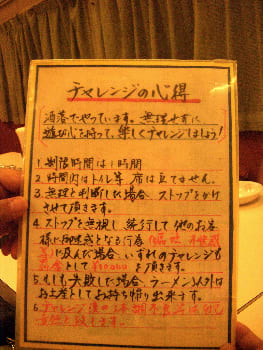 チャレンジの心得
洒落でやっています。無理せずに
遊び心を持って、楽しくチャレンジしましょう!
1. 制限時間は1時間
2. 時間内はトイレ等 席は立てません。
3. 無理と判断した場合 ストップをかけ
させて頂きます。
4. ストップを無視し 続行して他のお客
様に御迷惑となる行為
に及んだ場合、いずれのチャレンジも
として を頂きます。
5. もしも失敗した場合 ラーメン以外は
お土産としてお持ち帰り出来ます。
6. チャレンジ後の体調不良等は
致します。